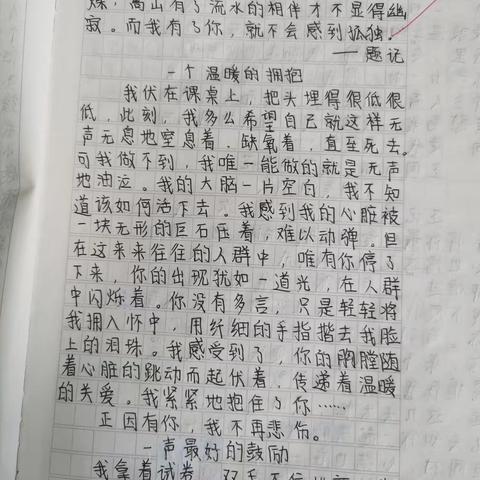 烁，高山有了流水的相伴才不显得幽
寂。而我有了你，就不会感到孤独。
——题记
一个温暖的拥抱
我伏在课桌上，把头埋得很低很
低，此刻，我多么希望自己就这样无
声无息地窒息着，缺氧着，直至死去。
可我做不到，我唯一能做的就是无声
地油泣。我的大脑一片空白，我不知
道该如何活下去。我感到我的心脏被
一块无形的巨石压着，难以动弹。但
在这来来往往的人群中，唯有你停了
下来，你的出现犹如一道光，在人群
中闪烁着。你没有多言，只是轻轻将
我拥入怀中，用纤细的手指揩去我脸
上的泪珠。我感受到了，你的胸膛随
着心脏的跳动而起伏着，传递着温暖
的关爱。我紧紧地抱住了你……
正因有你，我不再悲伤。
一声最好的鼓励
我拿着试卷，双手不住地